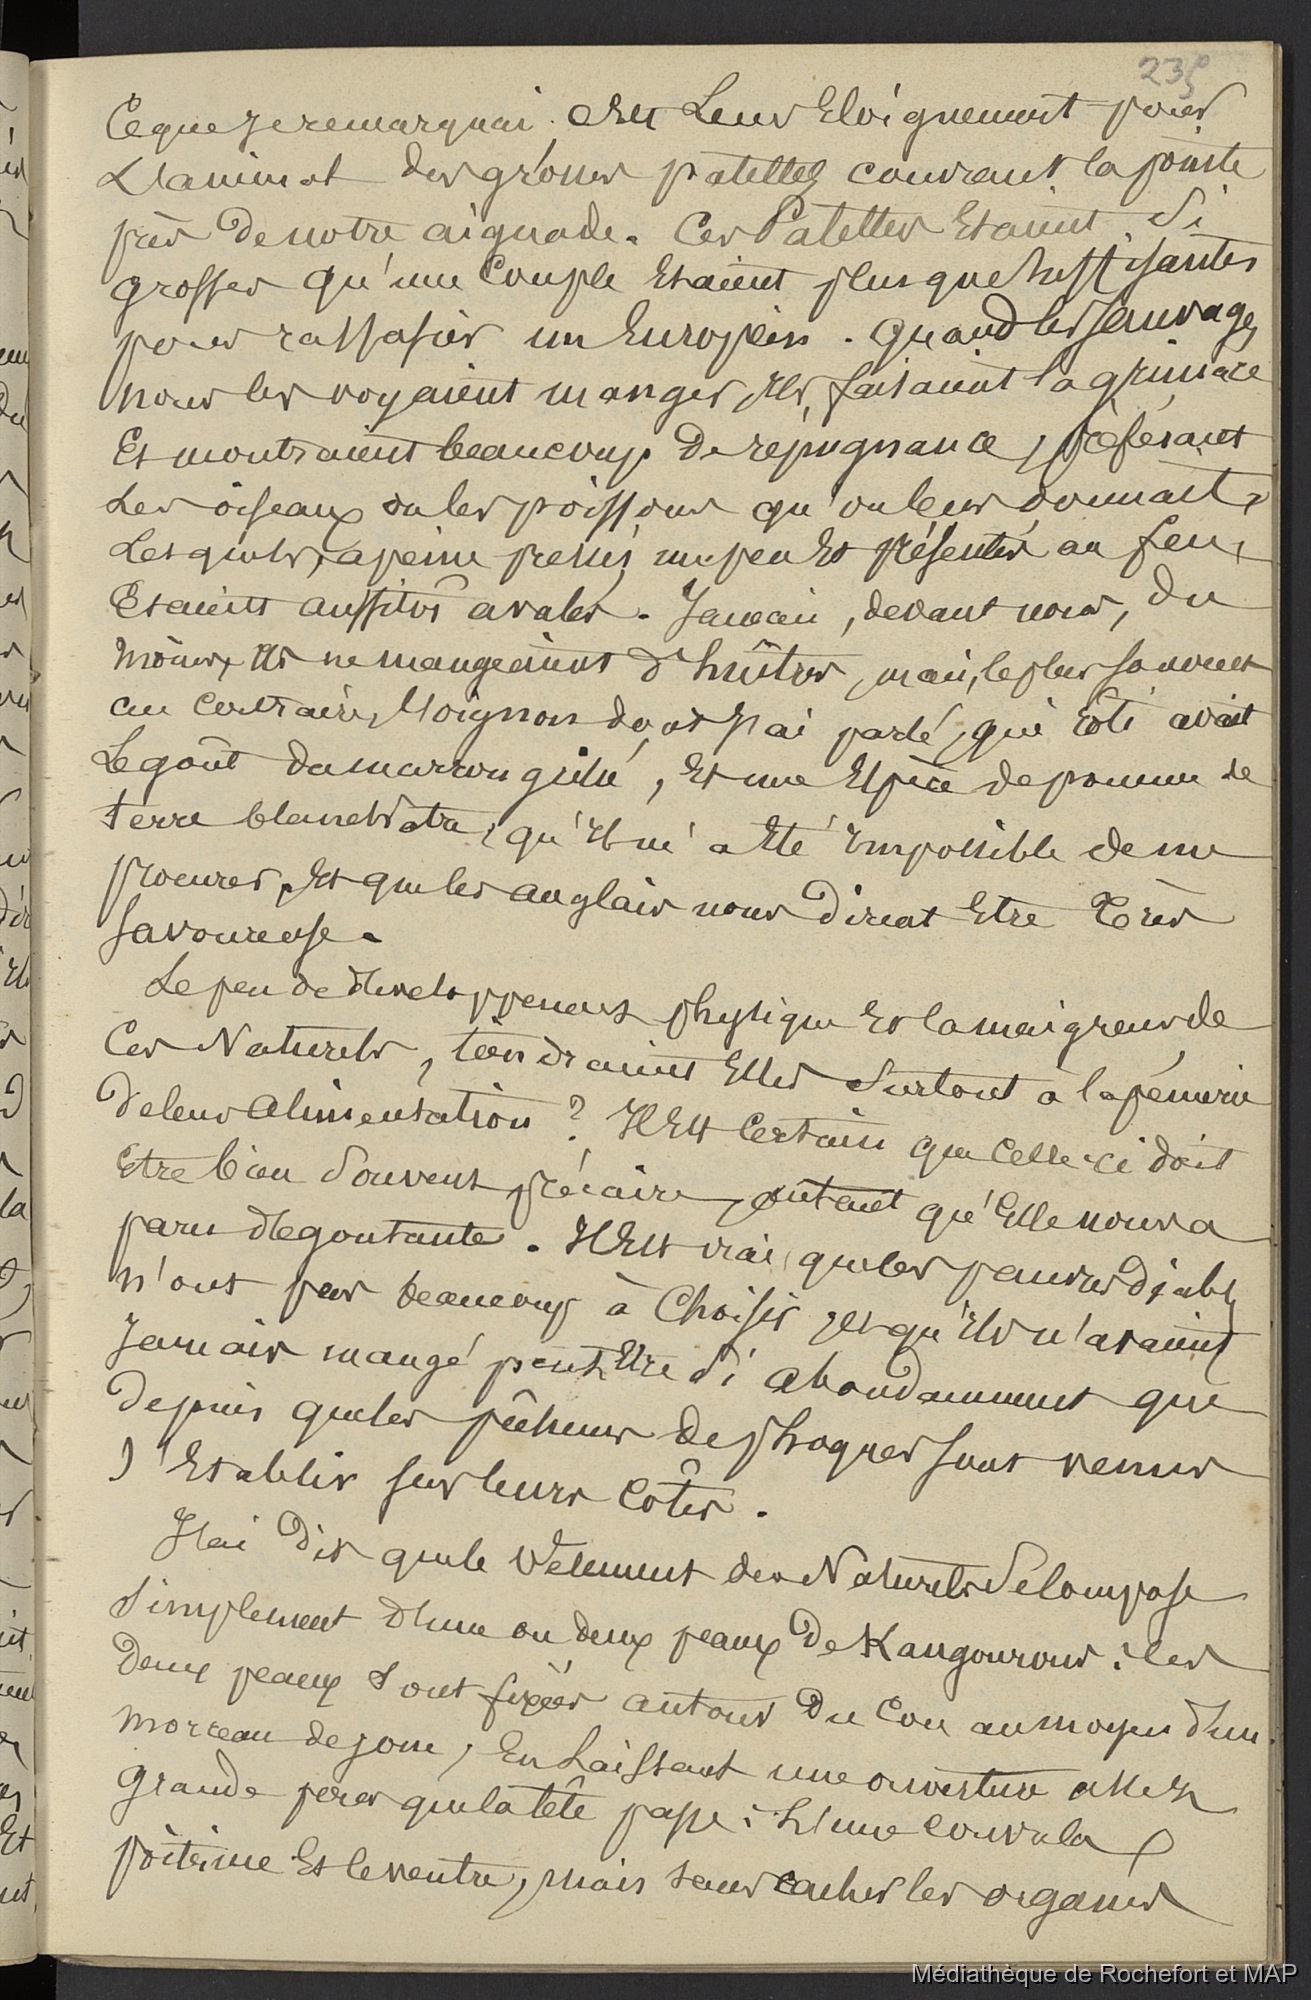 235
Ce que je remarquai est leur éloignement pour
l'animal des grosses patelles couvrant la pointe
près de notre aiguade. Ces Patelles étaient si
grosses qu'une couple étaient plus que suffisantes
pour rassasier un Européen. Quand les sauvages
nous les voyaient manger, ils faisaient la grimace
et montraient beaucoup de répugnance, préférant
les oiseaux ou les poissons qu'on leur donnait,
lesquels, à peine pressés un peu et présentés au feu,
étaient aussitôt avalés. Jamais, devant nous, du
moins, ils ne mangeaient d'huîtres, mais, le plus souvent
au contraire, Moignon dont j'ai parlé, qui rôti avait
le goût du marron grillé, et une espèce de pomme de
terre blanchâtre, qu'il m'a été impossible de me
procurer, et que les anglais nous dirent être très
savoureuse.
Le peu de développement physique et la maigreur de
ces Naturels, tiendraient elles surtout à la pénurie
de leur alimentation ? Il est certain que celle-ci doit
être bien souvent précaire, autant qu'elle nous a
paru dégoutante. Il est vrai que les pauvres diables
n'ont pas beaucoup à choisir, et qu'ils n'avaient
jamais mangé peut être si abondamment que
depuis que les pêcheurs de phoques sont venus
s'établir sur leurs côtes.
J'ai dit que le vêtement des Naturels se compose
simplement d'une ou deux peaux de Kangourous : les
deux peaux sont fixées autour du cou au moyen d'un
morceau de jonc, en laissant une ouverture assez
grande pour que la tête passe : l'une couvre la
poitrine et le ventre, mais sans cacher les organes
Médiathèque de Rochefort et MAP